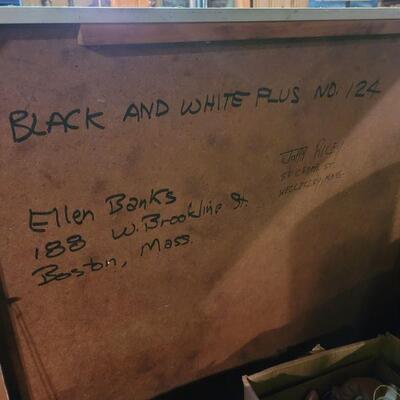 BLACK AND WHITE PLUS NO. 124
Ellen Banks
188 W. Brookline St.
Boston, Mass.
WELLESLEY MASS.